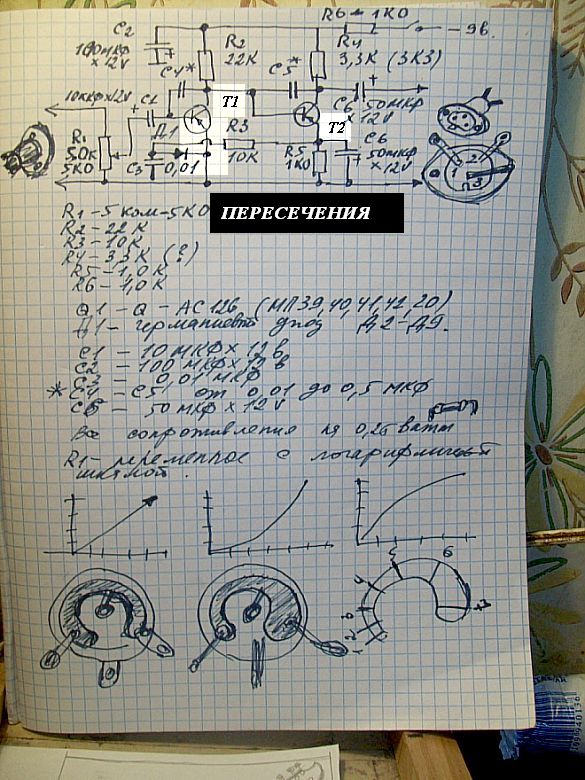 R6 - 1К0
- 9в.
C2
100мкф
x 12V
R2
22К
R4
3,3К (3К3)
C4*
C5*
10мкф x 12V
C1
T1
C6 50мкф
x 12V
Д1
R3
T2
R1
50К
5К0
C3
0,01
10К
R5
1К0
C6
50мкф
x 12V
1
2
3
R1 - 5 ком - 5К0
ПЕРЕСЕЧЕНИЯ
R2 - 22 К
R3 - 10К
R4 - 3,3К (?)
R5 - 1,0 К
R6 - 1,0 К
Q1 - Q - AC126 (МП39,40,41,42,20)
Д1 - германиевый диод Д2-Д9.
C1 - 10 мкф x 12 в
C2 - 100 мкф x 12 в
C3 - 0,01 мкф
* C4 - C5 от 0,01 до 0,5 мкф
C6 - 50 мкф x 12V
Все сопротивления на 0,25 ватт
R1 - переменное с логарифмической
шкалой.
1
2
3
4
5
6
+7